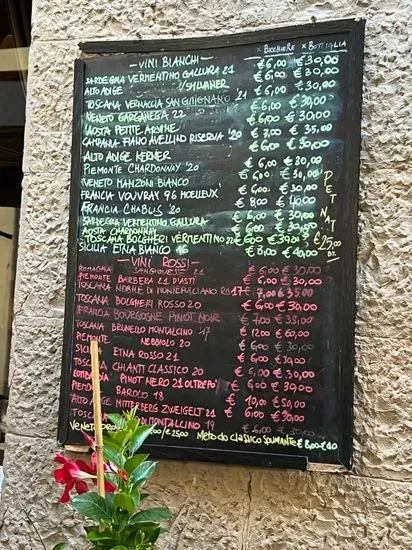 - VINI BIANCHI - x BICCHIERE x BOTTIGLIA
SARDEGNA VERMENTINO GALLURA 21 €6,00 €30,00
ALTO ADIGE SYLVANER €6,00 €30,00
TOSCANA VERNACCIA SAN GIMIGNANO 21 €6,00 €30,00
VENETO GARGANEGA 22 €6,00 €30,00
AOSTA PETITE ARVINE €7,00 €35,00
CAMPANIA FIANO AVELLINO RISERVA '20 €6,00 €30,00
ALTO ADIGE KERNER €6,00 €30,00
PIEMONTE CHARDONNAY '20 €6,00 €30,00
VENETO MANZONI BIANCO €6,00 €30,00
FRANCIA VOUVRAY 96 MOELLEUX €8,00 €40,00
FRANCIA CHABLIS '20 €6,00 €30,00
SARDEGNA VERMENTINO GALLURA €6,00 €30,00
AOSTA CHARDONNAY €6,00 €30,00
TOSCANA BOLGHERI VERMENTINO 22 €6,00 €30,00
SICILIA ETNA BIANCO €8,00 €40,00
€25,00
- VINI ROSSI -
ROMAGNA SANGIOVESE 21 €6,00 €30,00
PIEMONTE BARBERA 21 D'ASTI €6,00 €30,00
TOSCANA NOBILE DI MONTEPULCIANO €7,00 €35,00
TOSCANA BOLGHERI ROSSO 20 €6,00 €30,00
FRANCIA BOURGOGNE PINOT NOIR €7,00 €35,00
TOSCANA BRUNELLO MONTALCINO 17 €12,00 €60,00
PIEMONTE NEBBIOLO 20 €6,00 €30,00
SICILIA ETNA ROSSO 21 €6,00 €30,00
TOSCANA CHIANTI CLASSICO 20 €6,00 €30,00
LOMBARDIA PINOT NERO 21 OLTREPO €6,00 €30,00
PIEMONTE BAROLO 18 €10,00 €50,00
ALTO ADIGE MITTERBERG ZWEIGELT 21 €6,00 €30,00
TOSCANA DI MONTALCINO 19 €6,00 €30,00
VENETO €25,00 METODO CLASSICO SPUMANTE €8,00 €40